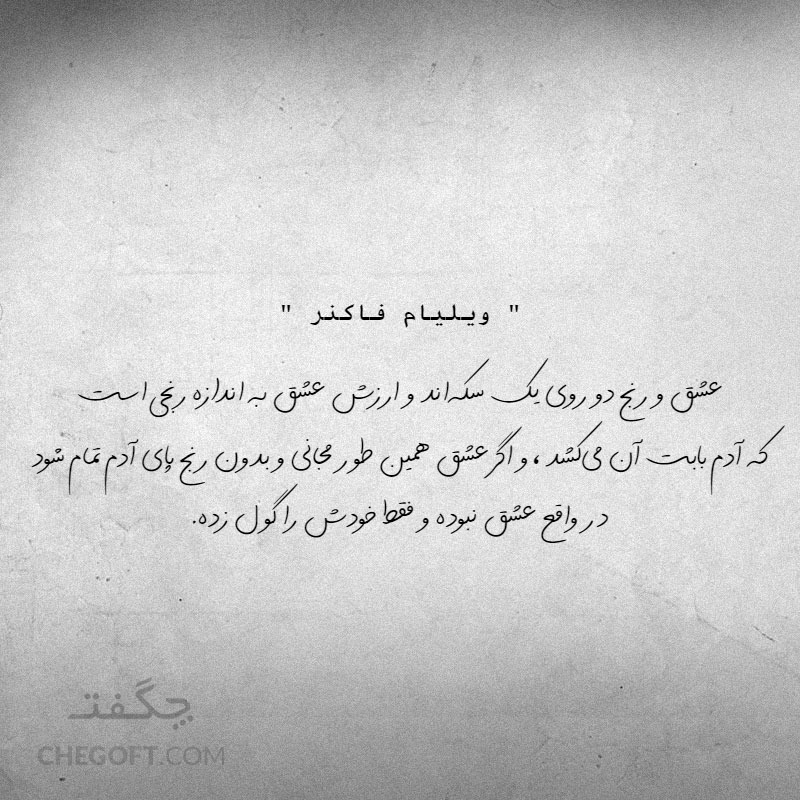 " ویلیام فاکنر "
عشق و رنج دو روی یک سکه‌اند و ارزش عشق به اندازه رنجی است
که آدم بابت آن می‌کشد ، و اگر عشق همین طور مجانی و بدون رنج پای آدم تمام شود
در واقع عشق نبوده و فقط خودش را گول زده.
چگفت
CHEGOFT.COM